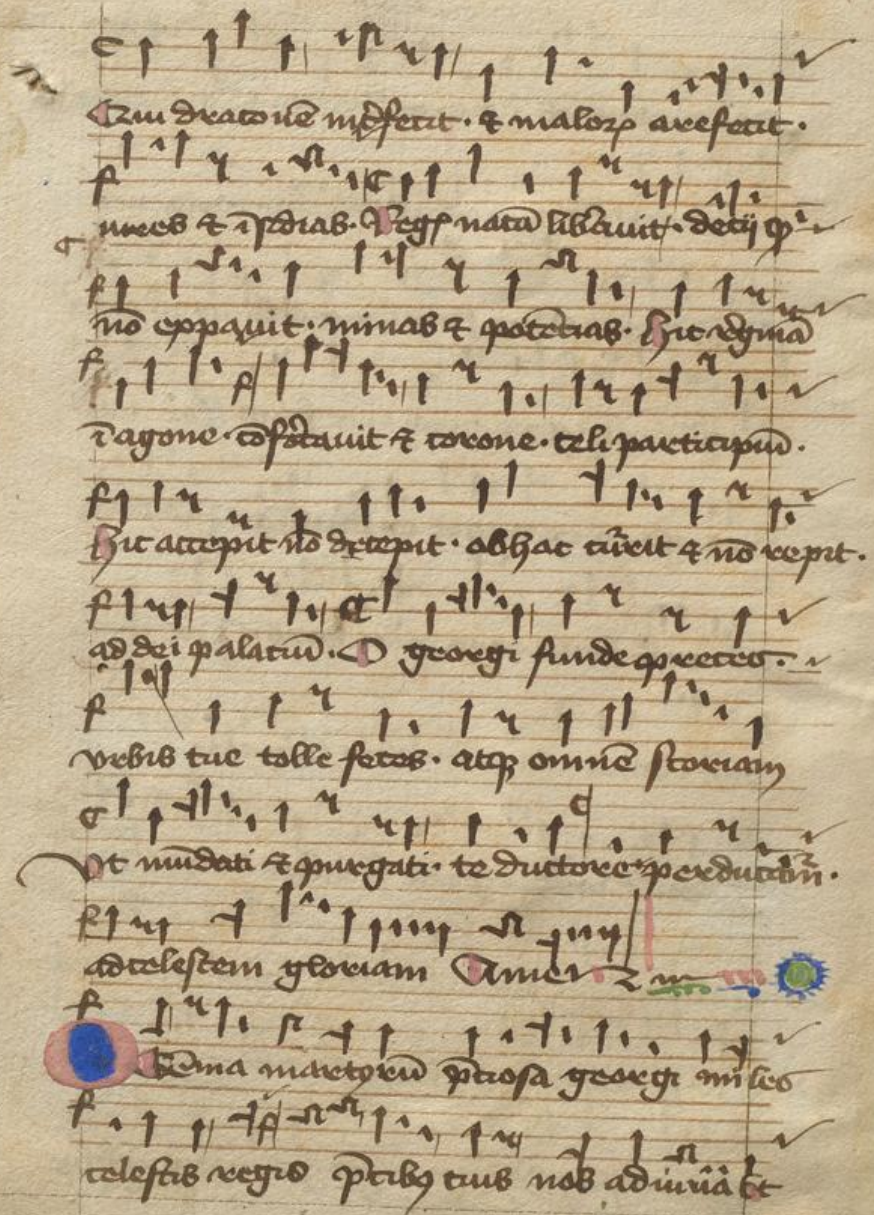 Cui draconē int̄fecit · ⁊ malorꝫ arefecit ·
uires ⁊ īsidias · Regꝭ natā lib̄auit · decij
nō expauit · minas ⁊ potēcias · Hic reginā
ī agone · cōfortauit ⁊ corone · celi participiū ·
hic accepit nō decepit · ob hac currit ⁊ nō repit ·
ad dei palaciū · O georgi funde preces · -
vrbis tue tolle feces · atqꝫ omnē scoriam
Vt mūdati ⁊ purgati · te ductore perducam̄ ·
ad celestem gloriam Amen
Gēma martyrū p̄ciosa georgi miles
celestis regis p̄cibꝫ tuis nos adiuua